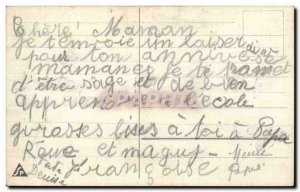 Chère Maman
je t'envoie un baiser
pour ton annive dire
maman je te promet
d'être sage et de bien
apprendre a l'école
grosses bises à toi à Papa
René et maguy
Denise Françoise